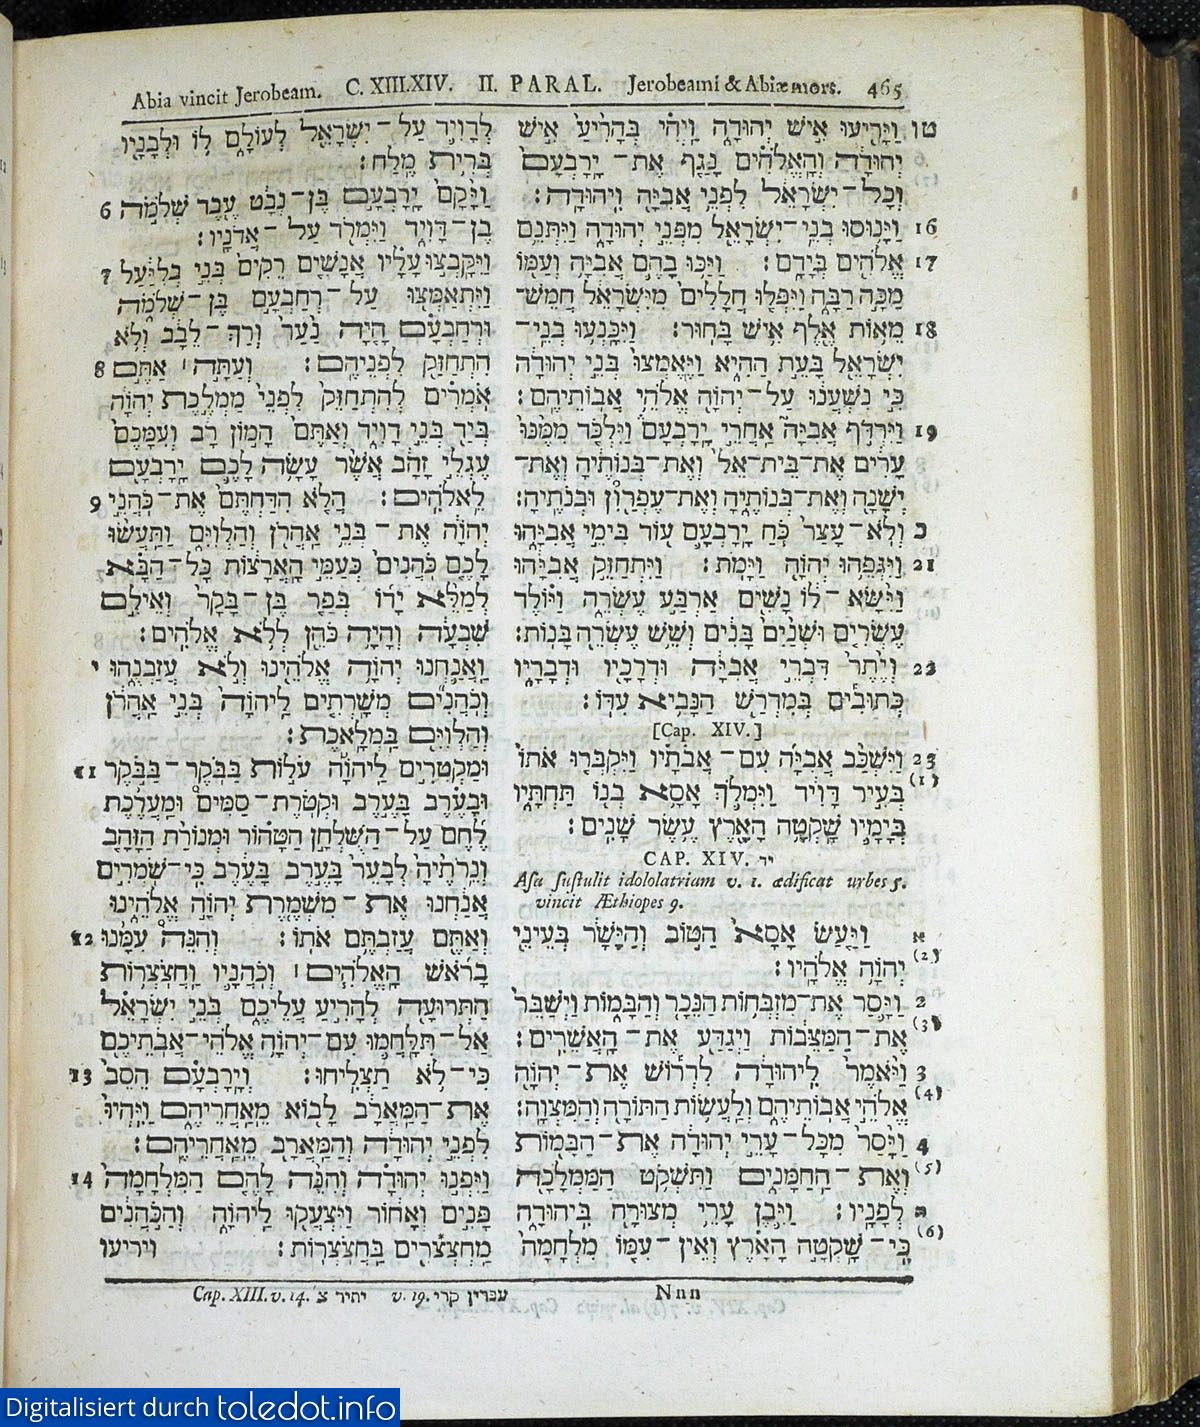 Abia vincit Jerobeam. C. XIII. XIV. II. PARAL. Jerobeami & Abiæ mors. 465
לְדָוִיד עַל־יִשְׂרָאֵל לְעוֹלָם לוֹ וּלְבָנָיו
בְּרִית מֶלַח:
6 וַיָּקָם יָרָבְעָם בֶּן־נְבָט עֶבֶד שְׁלֹמֹה
בֶן־דָּוִיד וַיִּמְרֹד עַל־אֲדֹנָיו:
7 וַיִּקָּבְצוּ עָלָיו אֲנָשִׁים רֵקִים בְּנֵי בְלִיַּעַל
וַיִּתְאַמְּצוּ עַל־רְחַבְעָם בֶּן־שְׁלֹמֹה
וּרְחַבְעָם הָיָה נַעַר וְרַךְ־לֵבָב וְלֹא
8 הִתְחַזַּק לִפְנֵיהֶם: וְעַתָּה׀ אַתֶּם
אֹמְרִים לְהִתְחַזֵּק לִפְנֵי מַמְלֶכֶת יְהוָֹה
בְּיַד בְּנֵי דָוִיד וְאַתֶּם הָמוֹן רָב וְעִמָּכֶם
עֶגְלֵי זָהָב אֲשֶׁר עָשָׂה לָכֶם יָרָבְעָם
9 לֵאלֹהִים: הֲלֹא הִדַּחְתֶּם אֶת־כֹּהֲנֵי
יְהוָֹה אֶת־בְּנֵי אַהֲרֹן וְהַלְוִיִּם וַתַּעֲשׂוּ
לָכֶם כֹּהֲנִים כְּעַמֵּי הָאֲרָצוֹת כָּל־הַבָּא
לְמַלֵּא יָדוֹ בְּפַר בֶּן־בָּקָר וְאֵילִם
שִׁבְעָה וְהָיָה כֹהֵן לְלֹא אֱלֹהִים:
י וַאֲנַחְנוּ יְהוָֹה אֱלֹהֵינוּ וְלֹא עֲזַבְנֻהוּ
וְכֹהֲנִים מְשָׁרְתִים לַיהוָֹה בְּנֵי אַהֲרֹן
וְהַלְוִיִּם בִּמְלָאכֶת:
11 וּמַקְטִרִים לַיהוָֹה עֹלוֹת בַּבֹּקֶר־בַּבֹּקֶר
וּבָעֶרֶב בָּעֶרֶב וּקְטֹרֶת־סַמִּים וּמַעֲרֶכֶת
לֶחֶם עַל־הַשֻּׁלְחָן הַטָּהוֹר וּמְנוֹרַת הַזָּהָב
וְנֵרֹתֶיהָ לְבָעֵר בָּעֶרֶב בָּעֶרֶב כִּי־שֹׁמְרִים
אֲנַחְנוּ אֶת־מִשְׁמֶרֶת יְהוָֹה אֱלֹהֵינוּ
12 וְאַתֶּם עֲזַבְתֶּם אֹתוֹ: וְהִנֵּה עִמָּנוּ
בָרֹאשׁ הָאֱלֹהִים׀ וְכֹהֲנָיו וַחֲצֹצְרוֹת
הַתְּרוּעָה לְהָרִיעַ עֲלֵיכֶם בְּנֵי יִשְׂרָאֵל
אַל־תִּלָּחֲמוּ עִם־יְהוָֹה אֱלֹהֵי־אֲבֹתֵיכֶם
13 כִּי־לֹא תַצְלִיחוּ: וְיָרָבְעָם הֵסֵב
אֶת־הַמַּאְרָב לָבוֹא מֵאַחֲרֵיהֶם וַיִּהְיוּ
לִפְנֵי יְהוּדָה וְהַמַּאְרָב מֵאַחֲרֵיהֶם:
14 וַיִּפְנוּ יְהוּדָה וְהִנֵּה לָהֶם הַמִּלְחָמָה
פָּנִים וְאָחוֹר וַיִּצְעֲקוּ לַיהוָֹה וְהַכֹּהֲנִים
מַחְצְצרִים בַּחֲצֹצְרוֹת: ויריעו
טו וַיָּרִיעוּ אִישׁ יְהוּדָה וַיְהִי בְּהָרִיעַ אִישׁ
יְהוּדָה וְהָאֱלֹהִים נָגַף אֶת־יָרָבְעָם
וְכָל־יִשְׂרָאֵל לִפְנֵי אֲבִיָּה וִיהוּדָה:
16 וַיָּנוּסוּ בְנֵי־יִשְׂרָאֵל מִפְּנֵי יְהוּדָה וַיִּתְּנֵם
17 אֱלֹהִים בְּיָדָם: וַיַּכּוּ בָהֶם אֲבִיָּה וְעַמּוֹ
מַכָּה רַבָּה וַיִּפְּלוּ חֲלָלִים מִיִּשְׂרָאֵל חֲמֵשׁ־
18 מֵאוֹת אֶלֶף אִישׁ בָּחוּר: וַיִּכָּנְעוּ בְנֵי־
יִשְׂרָאֵל בָּעֵת הַהִיא וַיֶּאֶמְצוּ בְּנֵי יְהוּדָה
כִּי נִשְׁעֲנוּ עַל־יְהוָֹה אֱלֹהֵי אֲבוֹתֵיהֶם:
19 וַיִּרְדֹּף אֲבִיָּה אַחֲרֵי יָרָבְעָם וַיִּלְכֹּד מִמֶּנּוּ
עָרִים אֶת־בֵּית־אֵל וְאֶת־בְּנוֹתֶיהָ וְאֶת־
יְשָׁנָה וְאֶת־בְּנוֹתֶיהָ וְאֶת־עֶפְרוֹן וּבְנֹתֶיהָ:
כ וְלֹא־עָצַר כֹּחַ יָרָבְעָם עוֹד בִּימֵי אֲבִיָּהוּ
21 וַיִּגְּפֵהוּ יְהוָֹה וַיָּמֹת: וַיִּתְחַזֵּק אֲבִיָּהוּ
וַיִּשָּׂא־לוֹ נָשִׁים אַרְבַּע עֶשְׂרֵה וַיּוֹלֶד
עֶשְׂרִים וּשְׁנַיִם בָּנִים וְשֵׁשׁ עֶשְׂרֵה בָּנוֹת:
22 וְיֶתֶר דִּבְרֵי אֲבִיָּה וּדְרָכָיו וּדְבָרָיו
כְּתוּבִים בְּמִדְרַשׁ הַנָּבִיא עִדּוֹ:
[Cap. XIV.]
23 וַיִּשְׁכַּב אֲבִיָּה עִם־אֲבֹתָיו וַיִּקְבְּרוּ אֹתוֹ
(1) בְּעִיר דָּוִיד וַיִּמְלֹךְ אָסָא בְנוֹ תַּחְתָּיו
בְּיָמָיו שָׁקְטָה הָאָרֶץ עֶשֶׂר שָׁנִים:
CAP. XIV. יד
Asa sustulit idololatriam v. 1. ædificat urbes 5.
vincit Æthiopes 9.
א וַיַּעַשׂ אָסָא הַטּוֹב וְהַיָּשָׁר בְּעֵינֵי
(2) יְהוָֹה אֱלֹהָיו:
2 וַיָּסַר אֶת־מִזְבְּחוֹת הַנֵּכָר וְהַבָּמוֹת וַיְשַׁבֵּר
(3) אֶת־הַמַּצֵּבוֹת וַיְגַדַּע אֶת־הָאֲשֵׁרִים:
3 וַיֹּאמֶר לִיהוּדָה לִדְרוֹשׁ אֶת־יְהוָֹה
(4) אֱלֹהֵי אֲבוֹתֵיהֶם וְלַעֲשׂוֹת הַתּוֹרָה וְהַמִּצְוָה:
4 וַיָּסַר מִכָּל־עָרֵי יְהוּדָה אֶת־הַבָּמוֹת
(5) וְאֶת־הַחַמָּנִים וַתִּשְׁקֹט הַמַּמְלָכָה
ה לְפָנָיו: וַיִּבֶן עָרֵי מְצוּרָה בִּיהוּדָה
(6) כִּי־שָׁקְטָה הָאָרֶץ וְאֵין־עִמּוֹ מִלְחָמָה
Cap. XIII. v. 14. יתיר צ v. 19. עפרין קרי
Nnn
Digitalisiert durch toledot.info